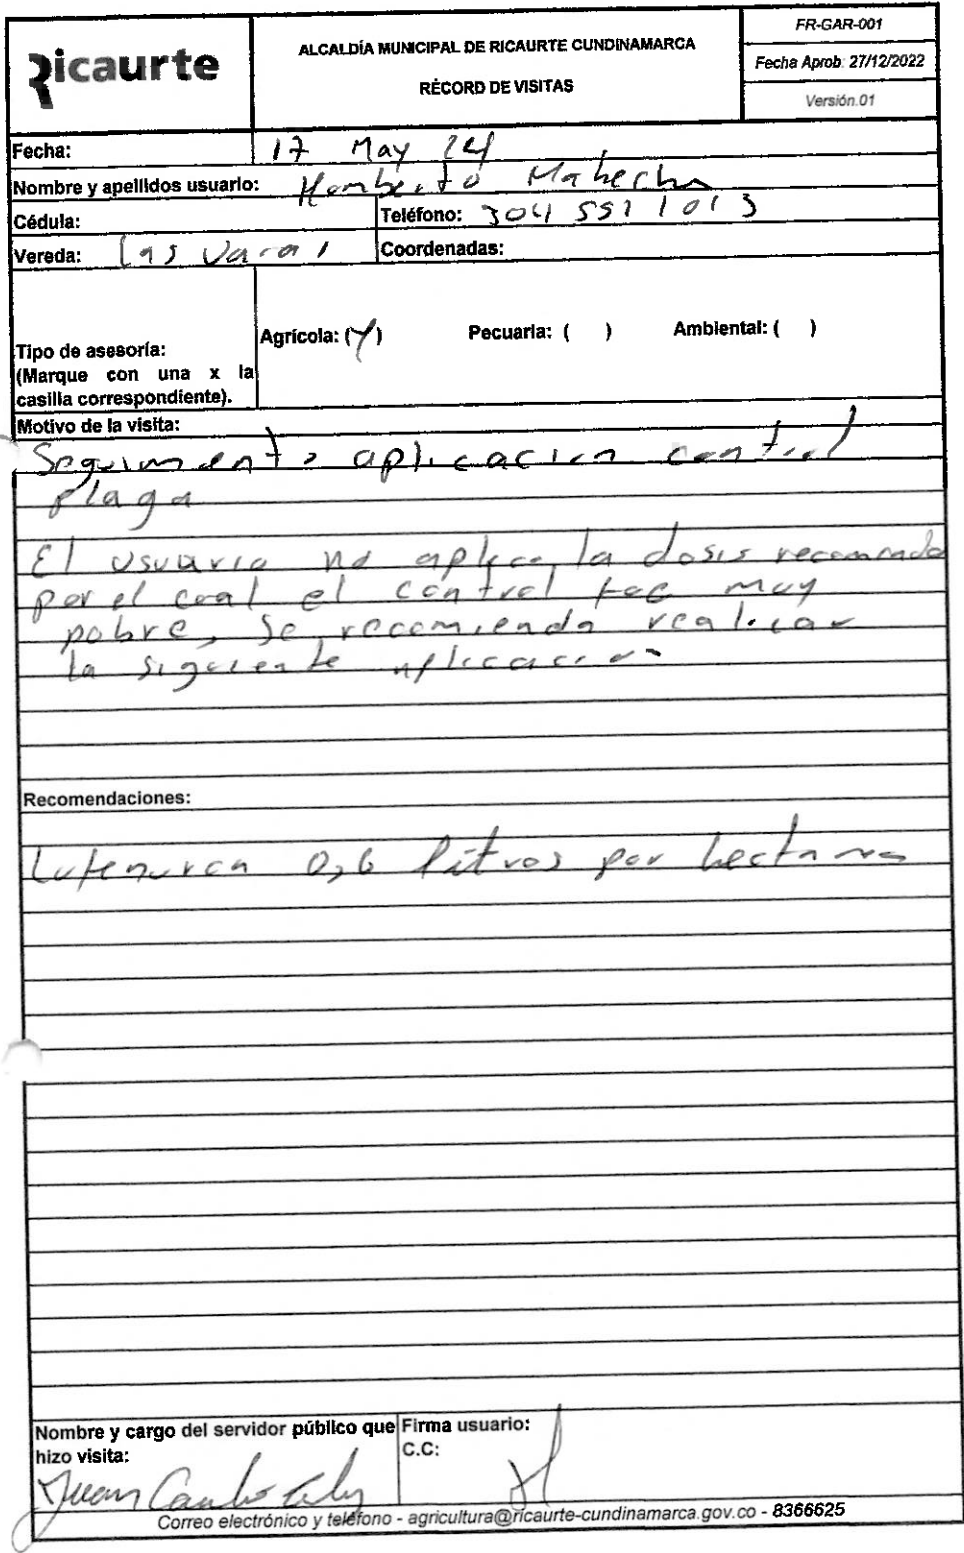 Ricaurte
ALCALDÍA MUNICIPAL DE RICAURTE CUNDINAMARCA
RÉCORD DE VISITAS
FR-GAR-001
Fecha Aprob: 27/12/2022
Versión.01
Fecha: 17 May 24
Nombre y apellidos usuario: Humberto Mahecha
Cédula: Teléfono: 304 5571013
Vereda: Las Varas Coordenadas:
Agrícola: (X) Pecuaria: ( ) Ambiental: ( )
Tipo de asesoría:
(Marque con una x la
casilla correspondiente).
Motivo de la visita:
Seguimiento aplicacion control
plaga
El usuario no aplico la dosis recomendada
por el cual el control fue muy
pobre, se recomienda realizar
la siguiente aplicacion
Recomendaciones:
0,6 litros por hectarea
Nombre y cargo del servidor público que
hizo visita:
Juan Carlos
Firma usuario:
C.C:
Correo electrónico y teléfono - agricultura@ricaurte-cundinamarca.gov.co - 8366625